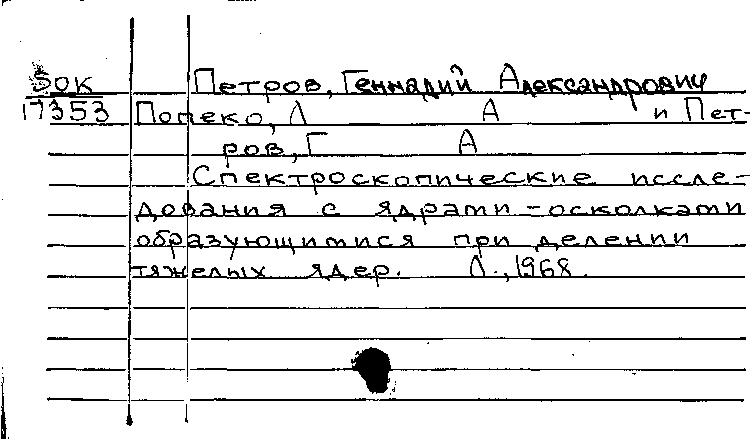 Вок Петров, Геннадий Александрович
17353 Попеко, Л А и Пет-
ров, Г А
Спектроскопические иссле-
дования с ядрами-осколками
образующимися при делении
тяжелых ядер. Л., 1968.